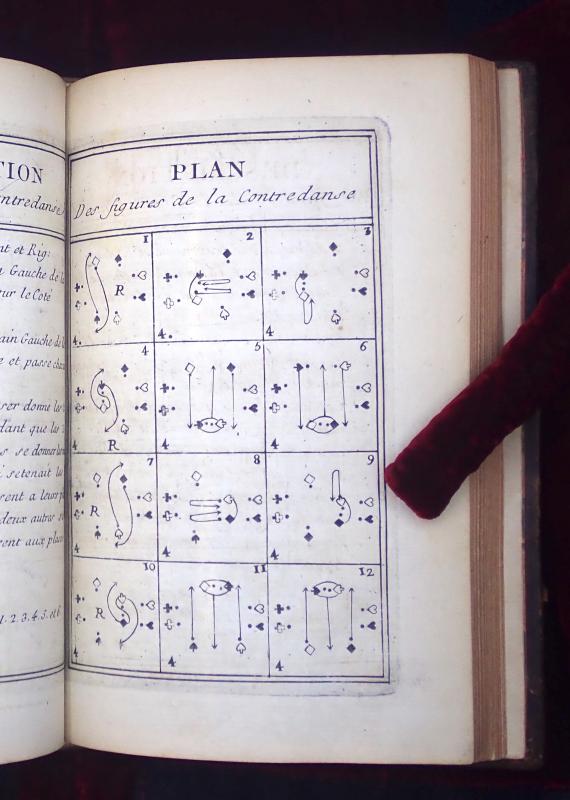 TION
ontredanse
nt et Rig:
Gauche de
sur le Coté
ain Gauche de
e et passe
rer donne
dant que les
s se donner
i setenait
sent a leur
deux autres
ront aux
1. 2. 3. 4. 5. et 6
PLAN
Des figures de la Contredanse
1 2 3
R
4. 4. 4
4 5 6
R
4 4 4
7 8 9
R
4 4 4
10 11 12
R
4 4 4